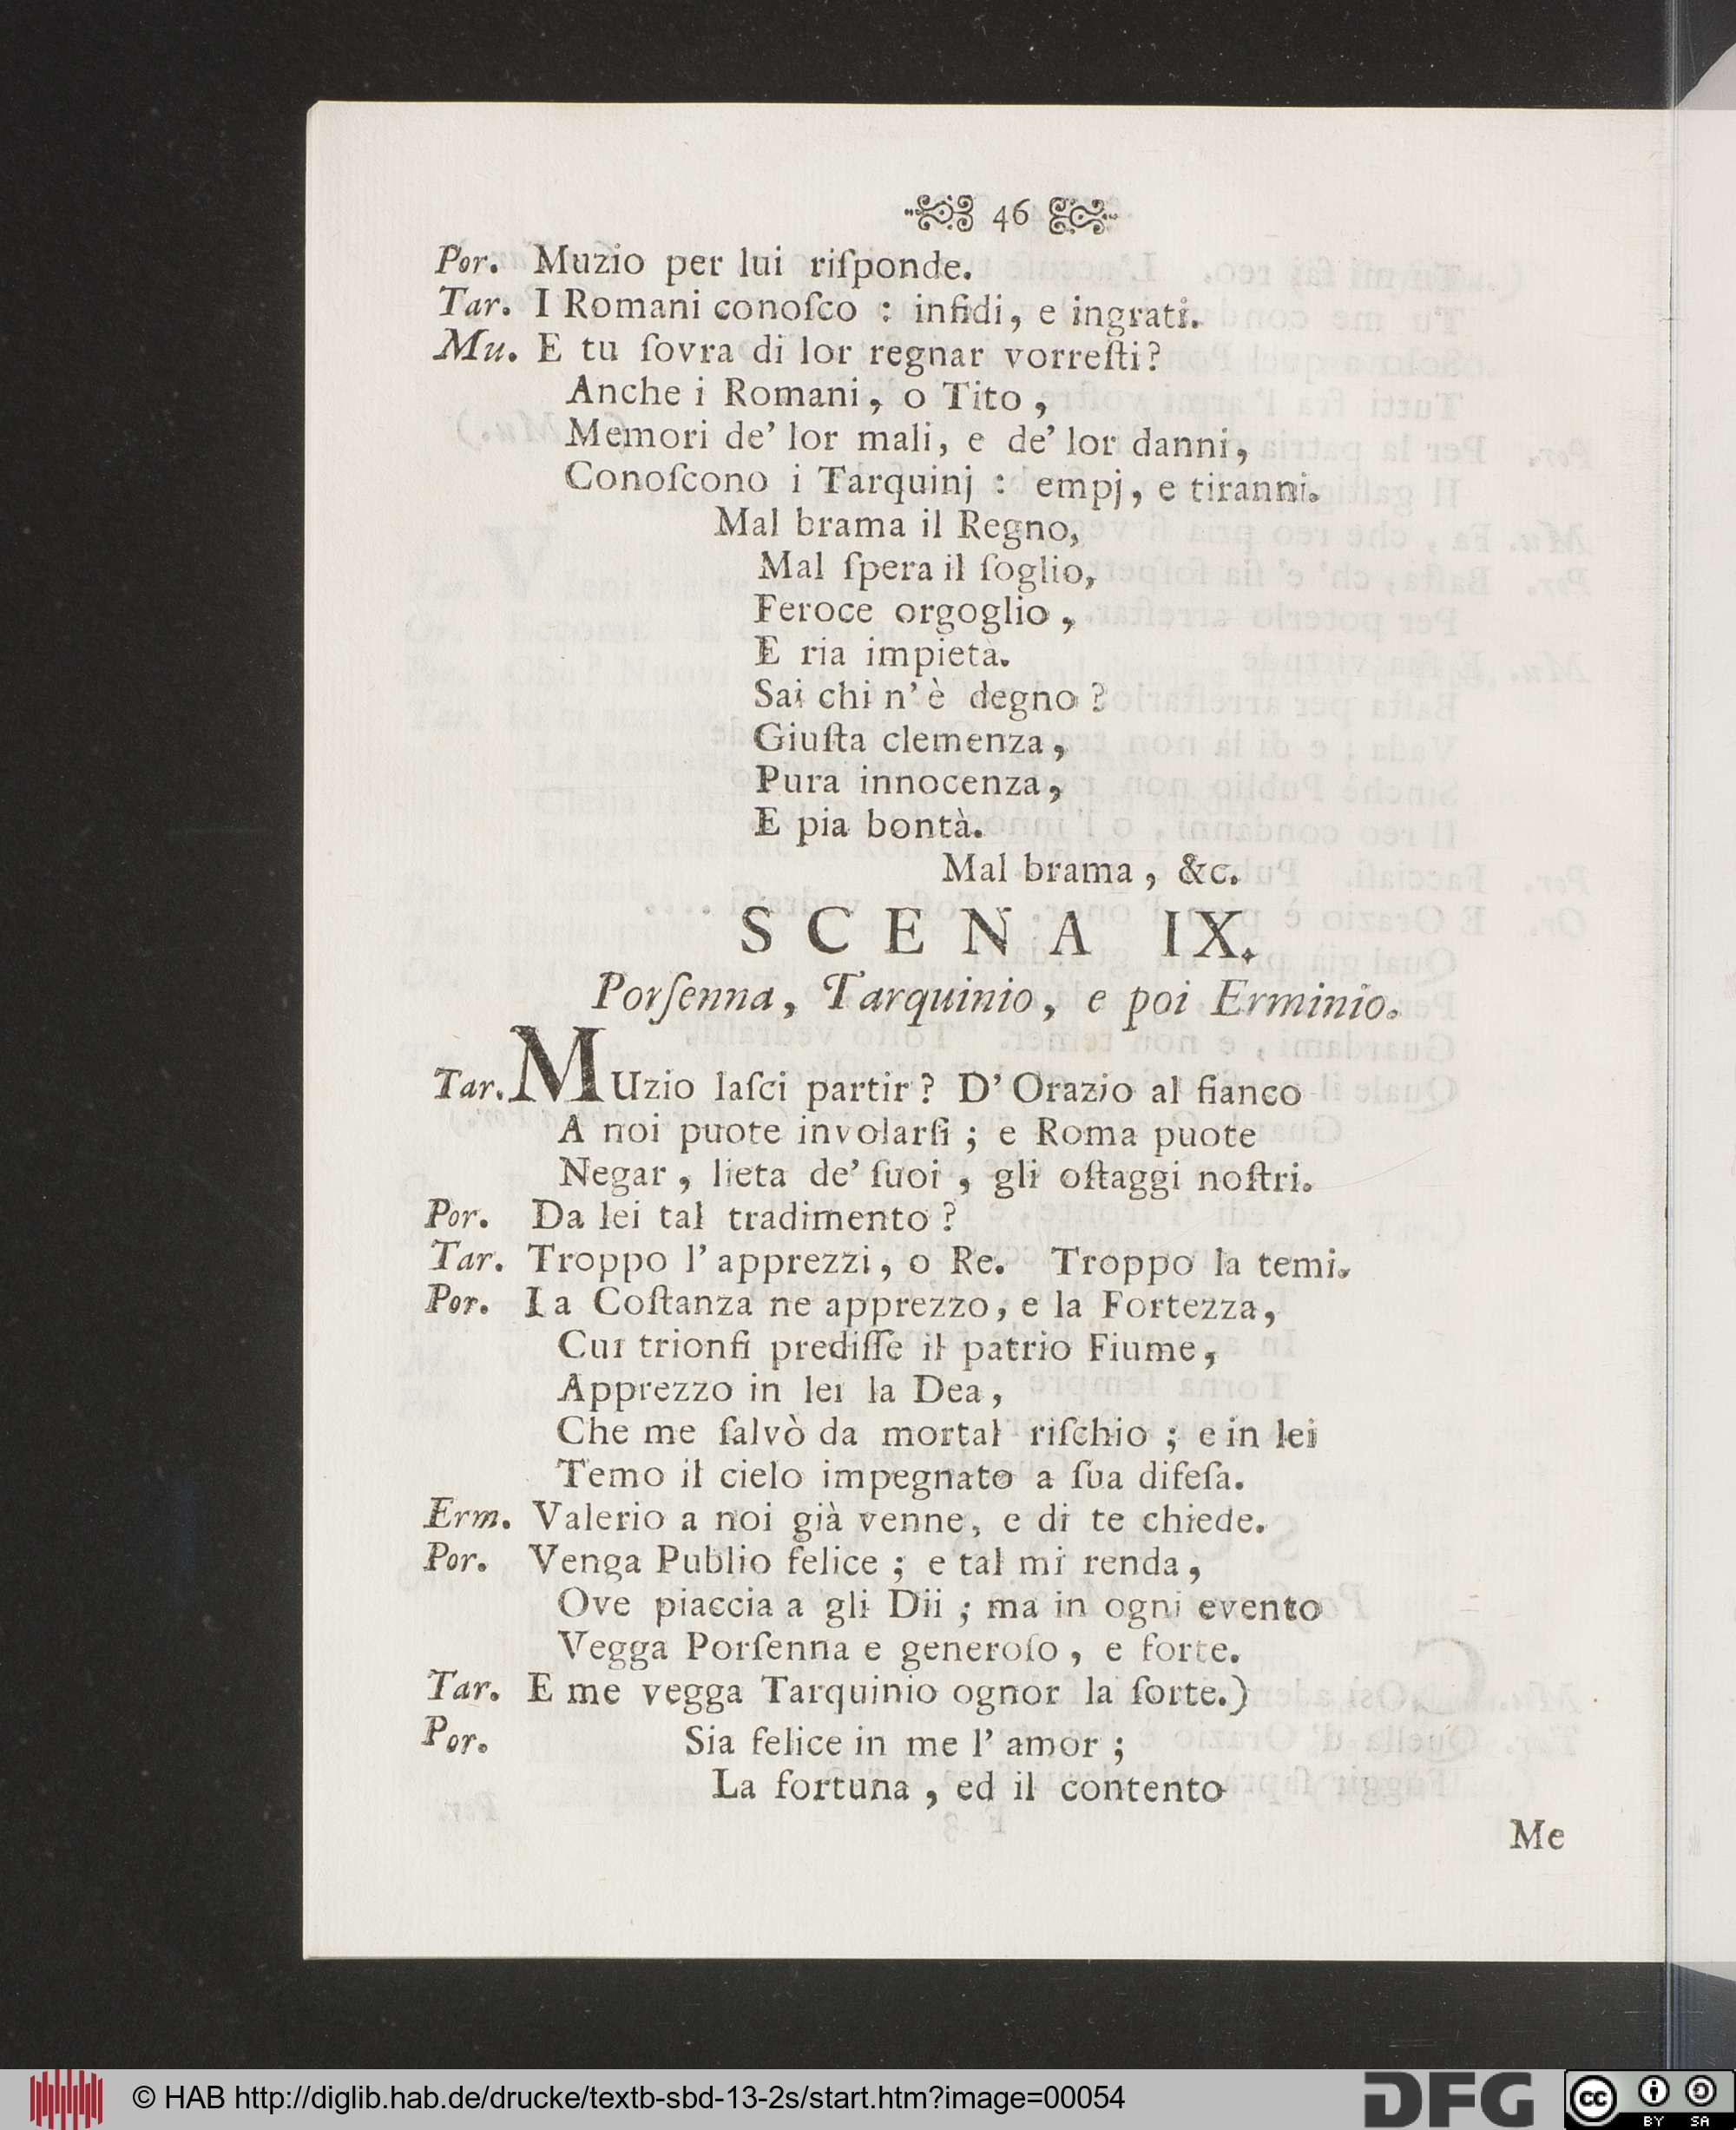 46
Por. Muzio per lui riſponde.
Tar. I Romani conoſco : infidi, e ingrati.
Mu. E tu ſovra di lor regnar vorreſti?
Anche i Romani, o Tito,
Memori de' lor mali, e de' lor danni,
Conoſcono i Tarquinj : empj, e tiranni.
Mal brama il Regno,
Mal ſpera il ſoglio,
Feroce orgoglio,
E ria impietà.
Sai chi n' è degno?
Giuſta clemenza,
Pura innocenza,
E pia bontà.
Mal brama, &c.
SCENA IX.
Porſenna, Tarquinio, e poi Erminio.
Tar. MUzio laſci partir? D' Orazio al fianco
A noi puote involarſi; e Roma puote
Negar, lieta de' ſuoi, gli oſtaggi noſtri.
Por. Da lei tal tradimento?
Tar. Troppo l' apprezzi, o Re. Troppo la temi.
Por. La Coſtanza ne apprezzo, e la Fortezza,
Cui trionfi prediſſe il patrio Fiume,
Apprezzo in lei la Dea,
Che me ſalvò da mortal riſchio; e in lei
Temo il cielo impegnato a ſua difeſa.
Erm. Valerio a noi già venne, e di te chiede.
Por. Venga Publio felice; e tal mi renda,
Ove piaccia a gli Dii; ma in ogni evento
Vegga Porſenna e generoſo, e forte.
Tar. E me vegga Tarquinio ognor la ſorte.)
Por. Sia felice in me l' amor;
La fortuna, ed il contento
Me
© HAB http://diglib.hab.de/drucke/textb-sbd-13-2s/start.htm?image=00054
DFG
cc BY SA